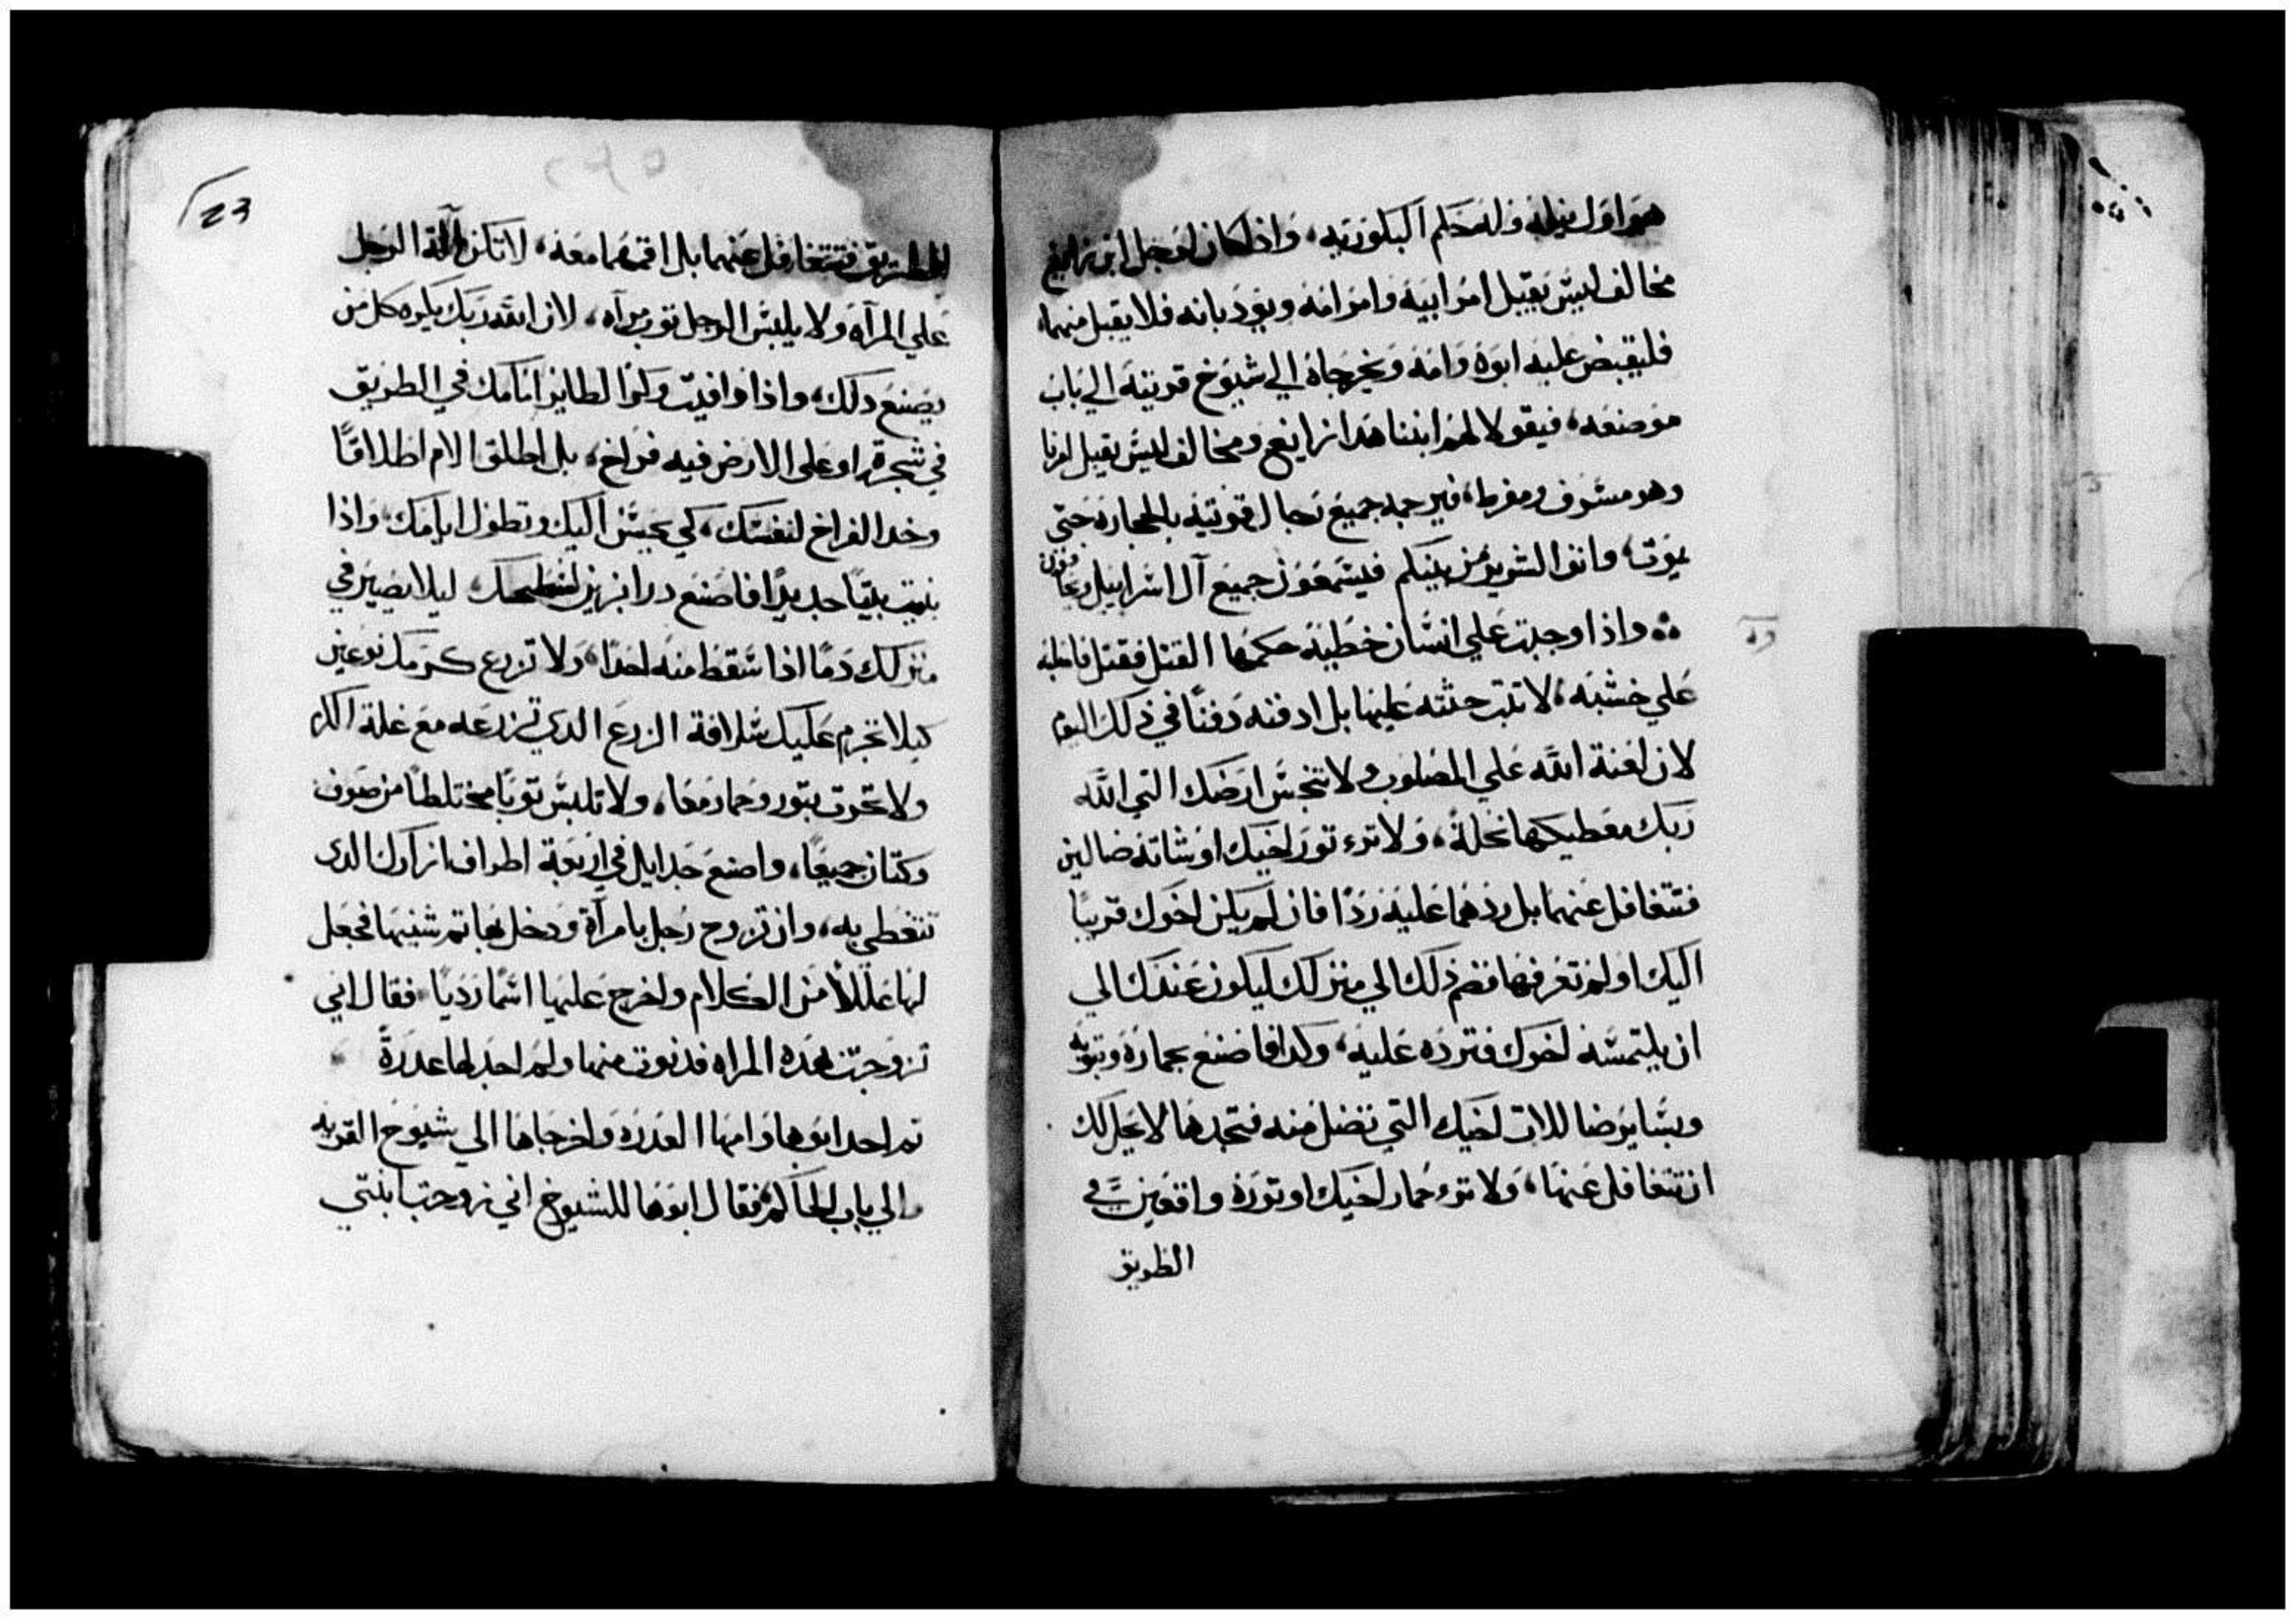 هو اول بنيه وله حكم البكوريه، واذا كان لرجل ابن زايغ
مخالف ليس يقبل امر ابيه وامر امه ويودبانه فلا يقبل منهما،
فليقبض عليه ابوه وامه ويخرجاه الي شيوخ قريته الي باب
موضعه، فيقولا لهم ابننا هذا زايغ ومخالف ليس يقبل امرنا
وهو مسوف ومفرط، فيرجمه جميع رجال قريته بالحجاره حتي
يموت، وانفوا الشرير من بينكم فيسمعون جميع آل اسراييل
واذا وجبت علي انسان خطية حكمها القتل فقتل
علي خشبه، لا تبت جثته عليها بل ادفنه دفنًا في ذلك اليوم
لان لعنة الله علي المصلوب ولا تنجس ارضك التي الله
ربك معطيكها نحلةً، ولا تري تور اخيك او شاته ضالين
فتتغافل عنهما بل ردهما عليه ردًا فان لم يكن اخوك قريبًا
اليك او لم تعرفها فضم ذلك الي منزلك ليكون عندك الي
ان يلتمسه اخوك فترده عليه، وكدا فاصنع بحماره وتوبه
وبساير ضالات اخيك التي تضل منه فتجدها لا يحل لك
ان تتغافل عنها، ولا تري حمار اخيك او توره واقعين في
الطريق
23
الطريق فتتغافل عنهما بل اقمهما معه، لا تكن آلة الرجل
علي المرآه ولا يلبس الرجل توب مرآه، لان الله ربك يكره كل من
يصنع دلك، واذا وافيت وكرًا لطاير امامك في الطريق
في شجرة او على الارض فيه فراخ، بل اطلق الام اطلاقًا
وخد الفراخ لنفسك، كي يحسن اليك وتطول ايامك واذا
بنيت بيتًا جديدًا فاصنع درابزين لسطحك ليلا يصير في
منزلك دمًا اذا سقط منه احدًا، ولا تزرع كرمك نوعين
كيلا تحرم عليك سلافة الزرع الدي تزرعه مع غلة الكرم
ولا تحرت بتور وحمار معًا، ولا تلبس توبًا مختلطًا من صوف
وكتان جميعًا، واصنع جدايل في اربعة اطراف ازارك الدى
تتغطى به، وان تزوج رجل بامرآة ودخل بها تم شنيها فجعل
لها عللاً من الكلام واخرج عليها اسمًا رديًا فقال اني
تزوجت هده المراه فدنوت منها ولم اجد لها عدرةً
تم احد ابوها وامها العدره واخرجاها الي شيوخ القريه
والي باب الحاكم، فقال ابوها للشيوخ اني زوجت ابنتي